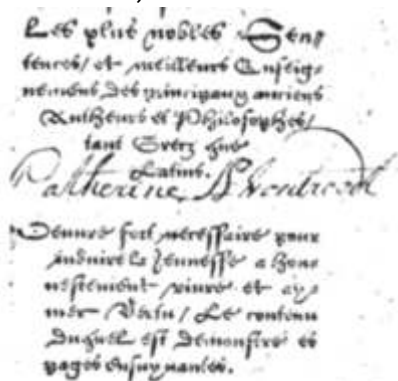 Les plus nobles Sen=
tences/ et meilleurs Enseig=
nemens des principaux anciens
Autheurs et Philosophes/
tant Grecz que
Latins.
Catherine
Oeuvre fort necessaire pour
induire la Jeunesse a hon=
nestement vivre et ay=
mer Vertu/ Le contenu
duquel est demonstre es
pages ensuyuantes.